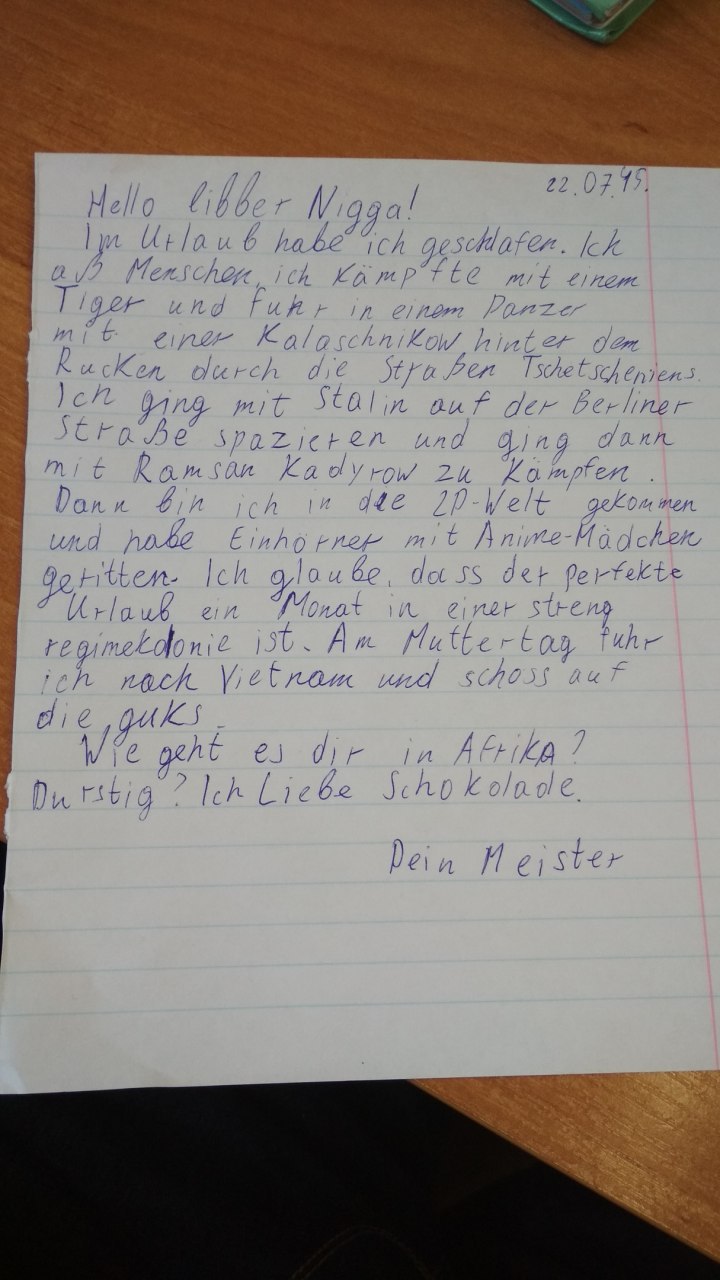 22.07.45.
Hello libber Nigga!
Im Urlaub habe ich geschlafen. Ich
aß Menschen, ich kämpfte mit einem
Tiger und fuhr in einem Panzer
mit einer Kalaschnikow hinter dem
Rucken durch die Straßen Tschetscheniens.
Ich ging mit Stalin auf der Berliner
Straße spazieren und ging dann
mit Ramsan Kadyrow zu kämpfen.
Dann bin ich in die 2D-Welt gekommen
und habe Einhörner mit Anime-Mädchen
geritten. Ich glaube, dass der perfekte
Urlaub ein Monat in einer streng
regimekolonie ist. Am Muttertag fuhr
ich nach Vietnam und schoss auf
die guks.
Wie geht es dir in Afrika?
Durstig? Ich Liebe Schokolade.
Dein Meister